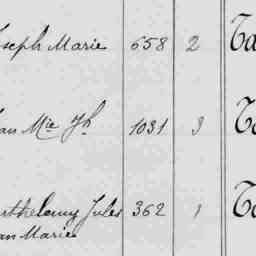 oseph Marie 658 2 Ta
an Mie Jh 1031 3 Ta
arthelemy Jules 362 1 Ta
an Marie